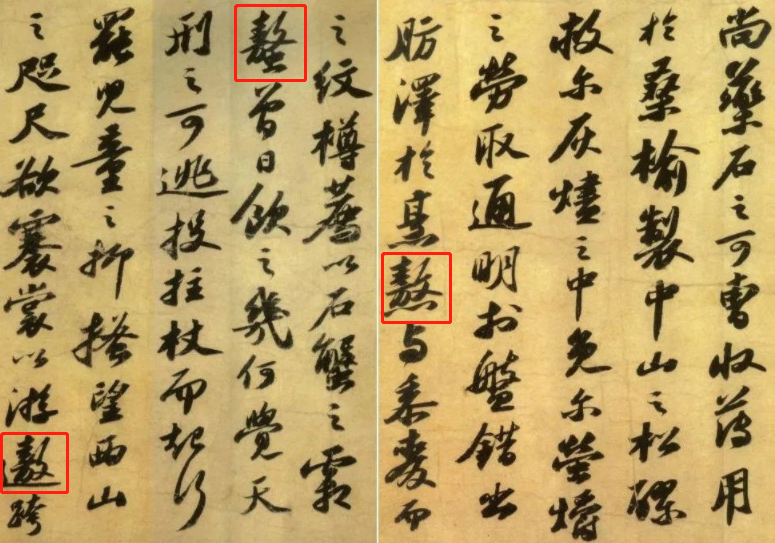 尚藥石之可曹收薄用
於桑榆製中山之松醪
救尔灰燼之中免尔螢爝
之勞取通明於盤錯出
肪澤於烹熬与黍麥而
之紋樽薦以石蟹之霜
螯曾日飲之幾何覺天
刑之可逃投拄杖而起行
罷兒童之抑搔望西山
之咫尺欲褰裳以游遨跨